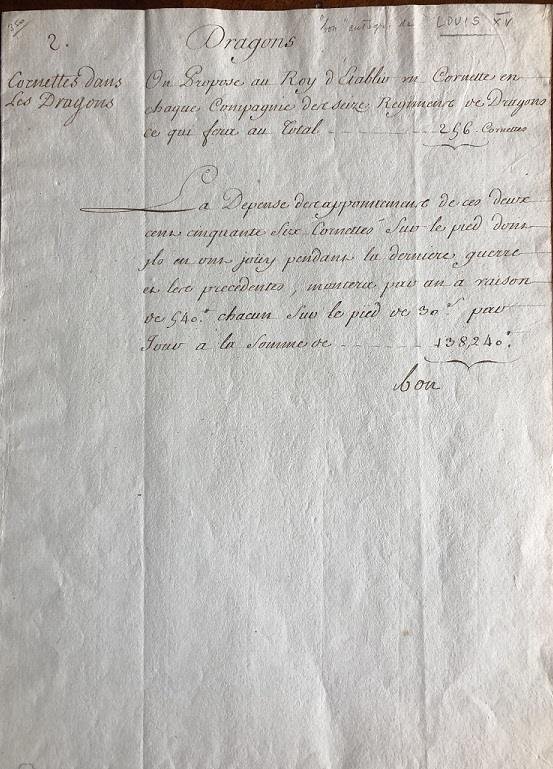 350
"bon" autogr. de LOUIS XV
2.
Dragons
Cornettes dans
Les Dragons
On Propose au Roy d'Etablir un Cornette en
chaque Compagnie des seize Regimens de Dragons
ce qui fera au Total 256. Cornettes
La Depense des appointemens de ces deux
cent cinquante six Cornettes sur le pied dont
ils en ont joüy pendant la derniere guerre
et les precedentes, montera par an a raison
de 540.# chacun sur le pied de 30.s par
Jour a la Somme de 138,240.#
bon